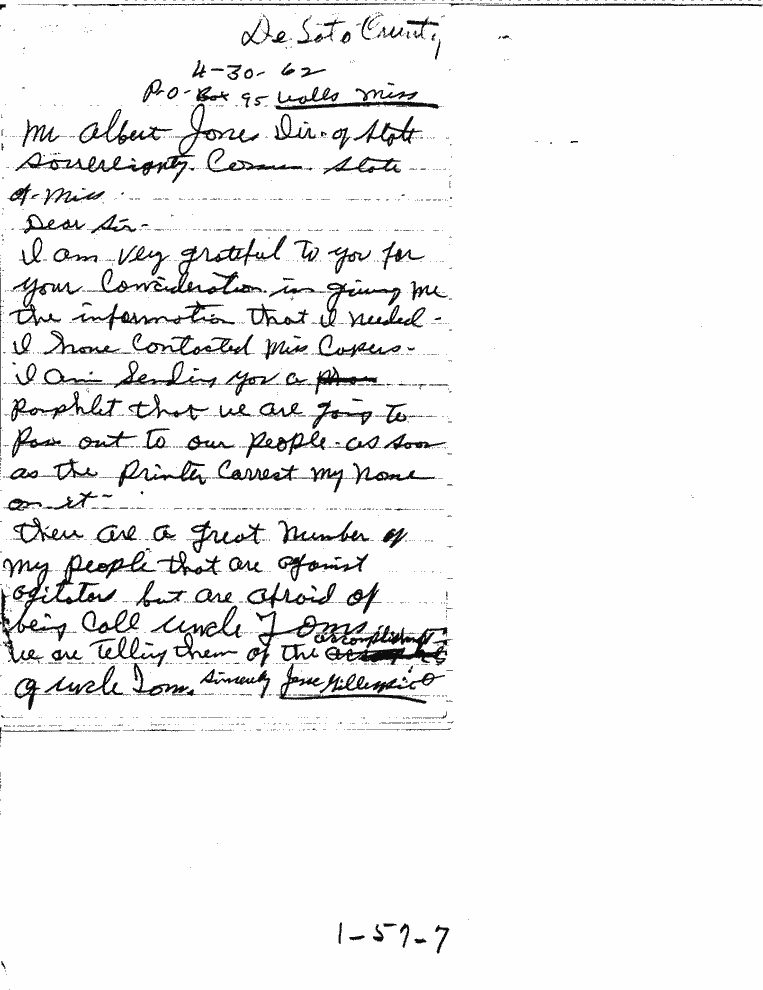 De Soto County
4-30-62
P-O-Box 95 Walls Miss
Mr Albert Jones Dir. of State
Sovereignty. Comm. State
of-Miss.
Dear Sir-
I am very grateful to you for
your Consideration in giving me
the information that I needed-
I have Contacted Miss Capers-
I am Sending you a
Pamphlet that we are going to
Pass out to our People-as soon
as the Printer Carrest my name
on it-
There are a great number of
my people that are against
agitators but are afraid of
being Call Uncle Toms
accomplishment-
We are Telling them of the
of uncle Tom. Sincerely
1-57-7